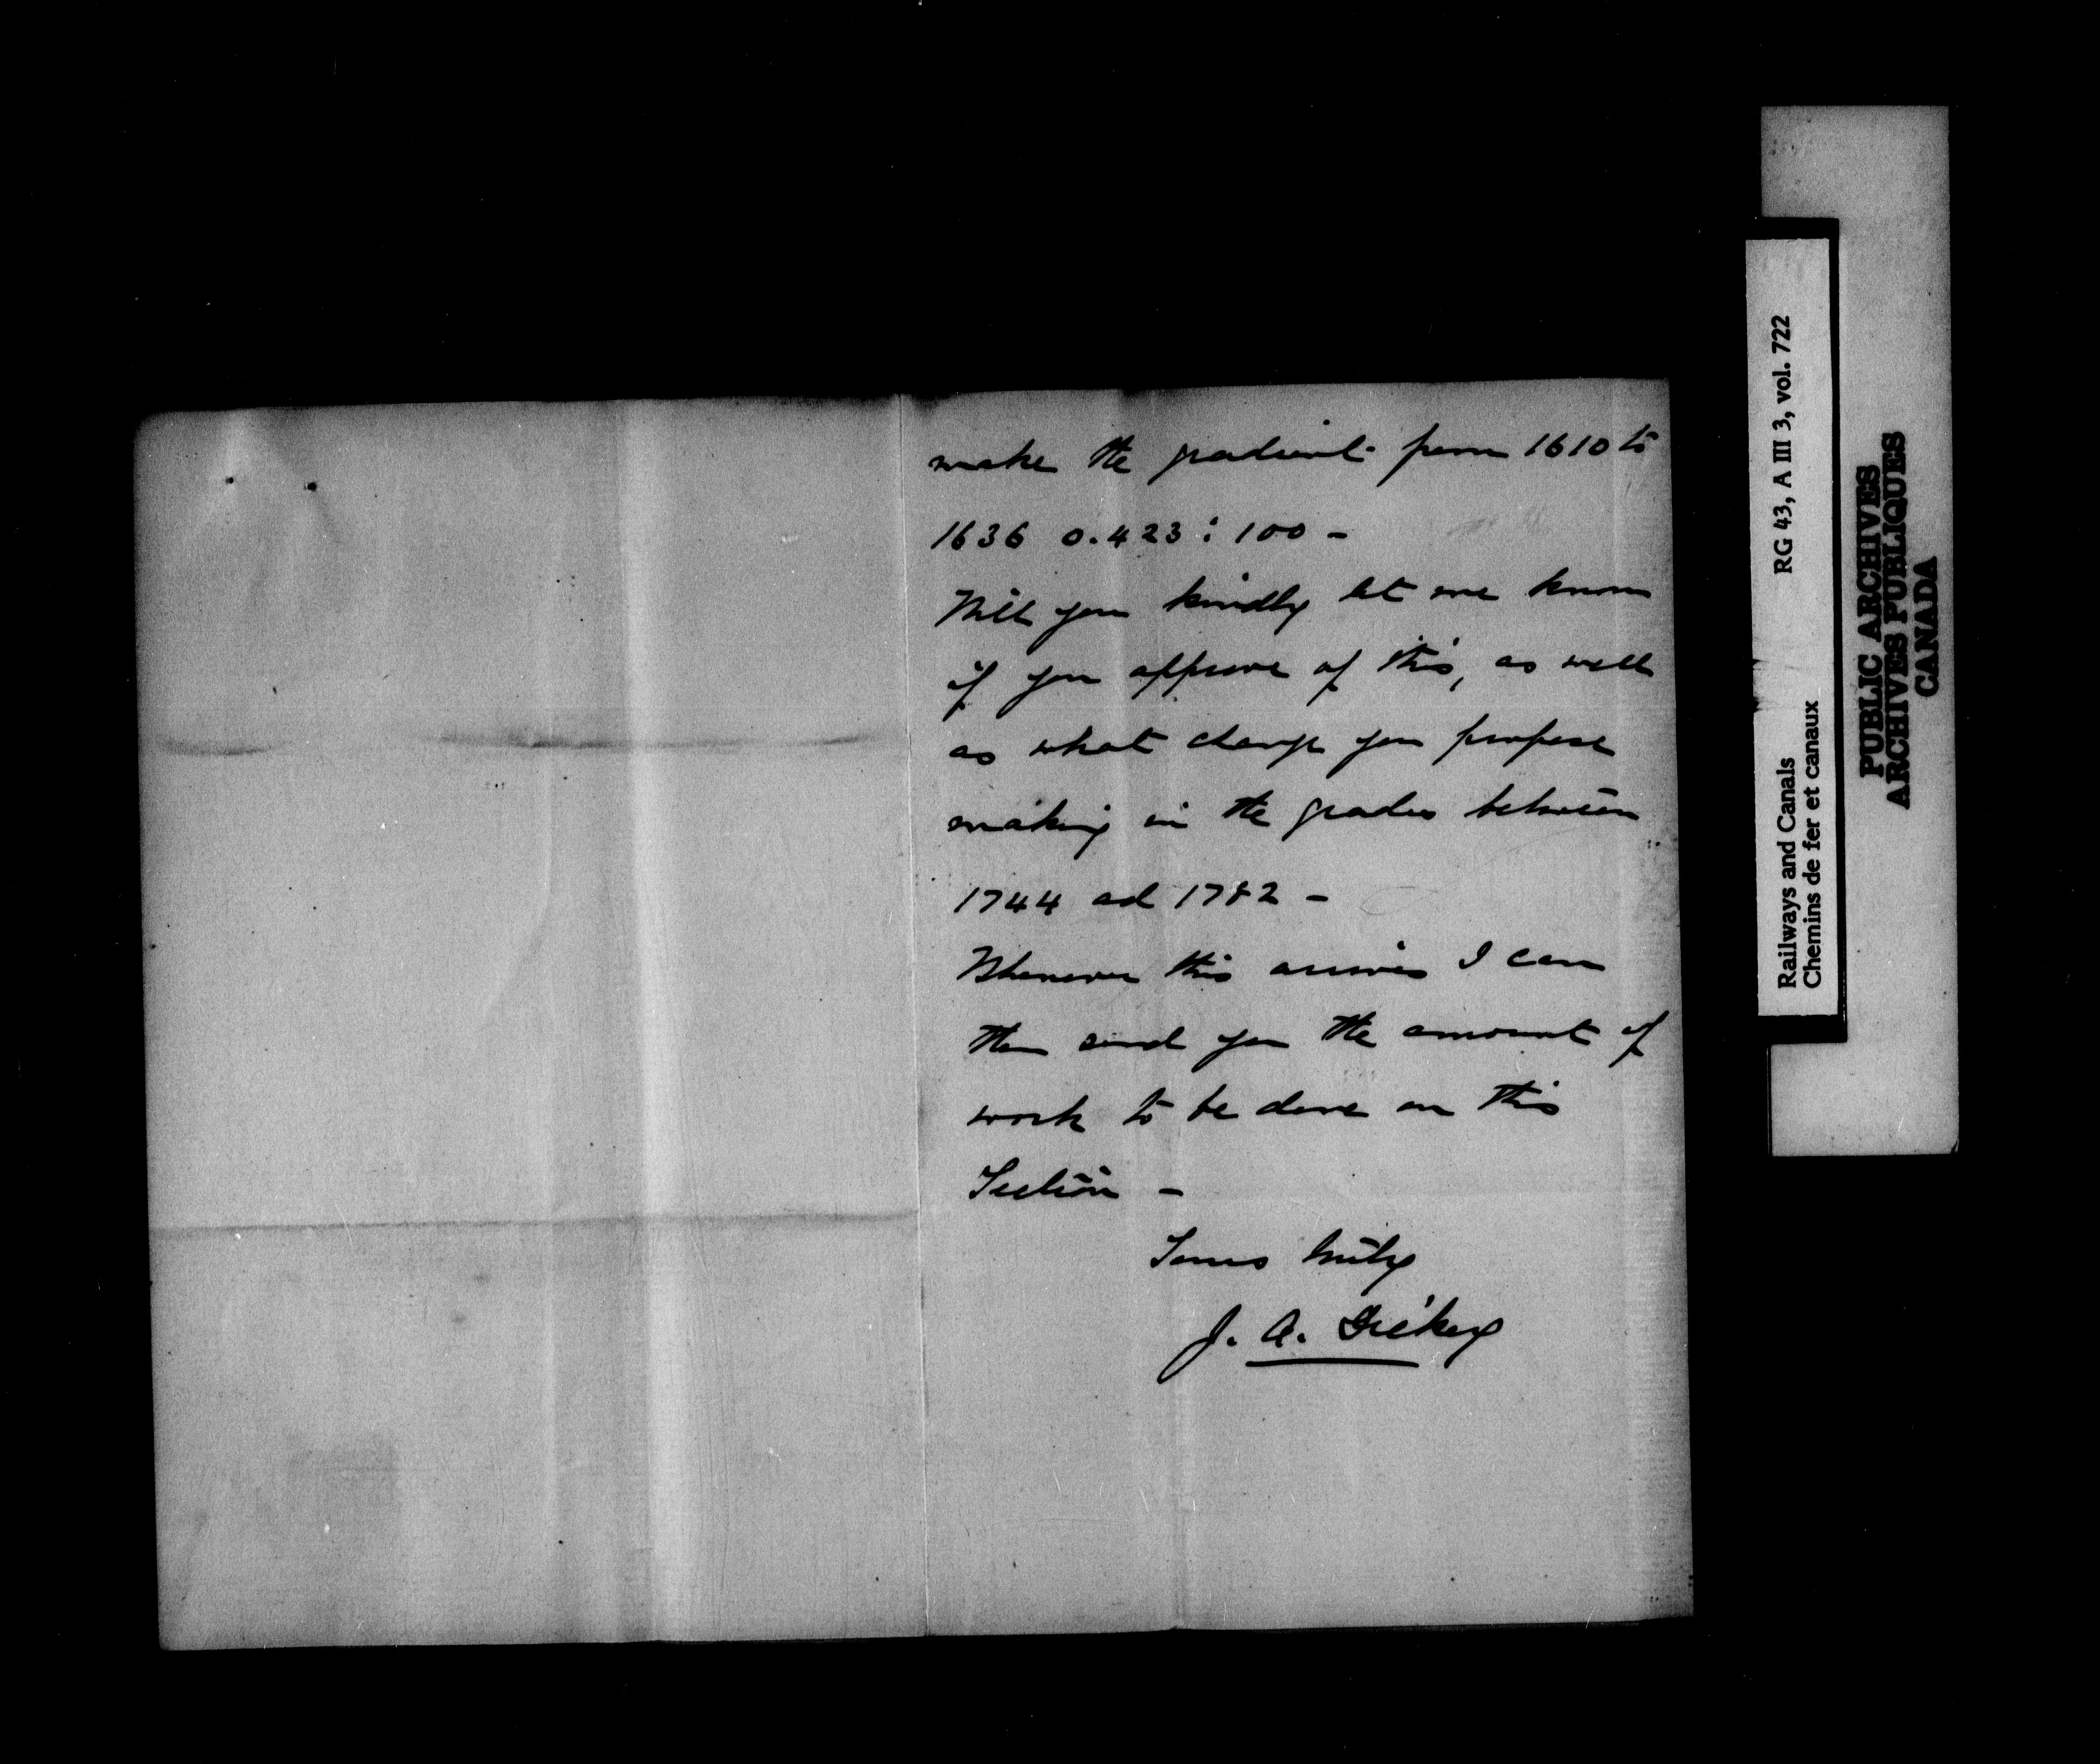 make the gradient from 1610 to
1636 0.423 : 100 -
Will you kindly let me know
if you approve of this, as well
as what change you propose
making in the grades between
1744 ad 1782 -
Whenever this arrives I can
then send you the amount of
work to be done on this
Section -
Yours truly
J. A. Dickey
Railways and Canals RG 43, A III 3, vol. 722
Chemins de fer et canaux
PUBLIC ARCHIVES
ARCHIVES PUBLIQUES
CANADA